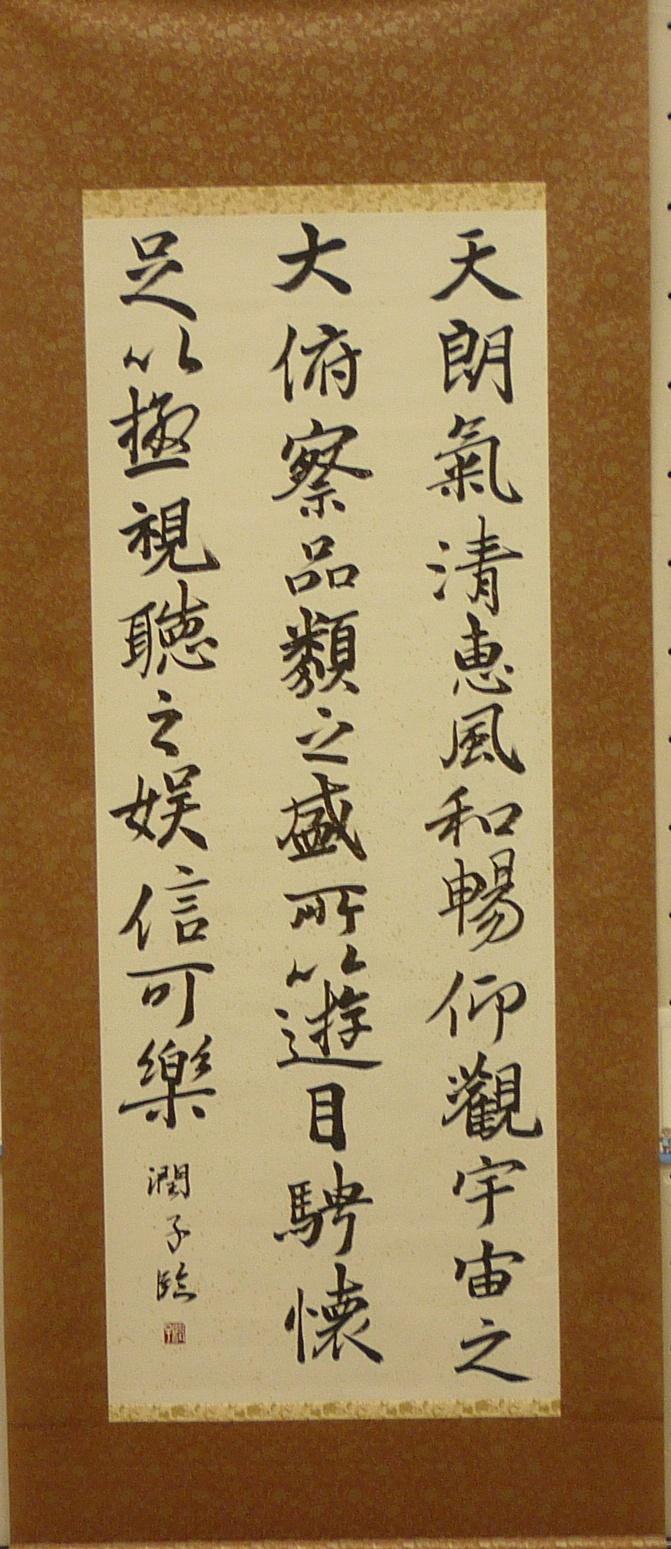 天朗氣清惠風和暢仰觀宇宙之
大俯察品類之盛所以遊目騁懷
足以極視聽之娯信可樂
潤子臨